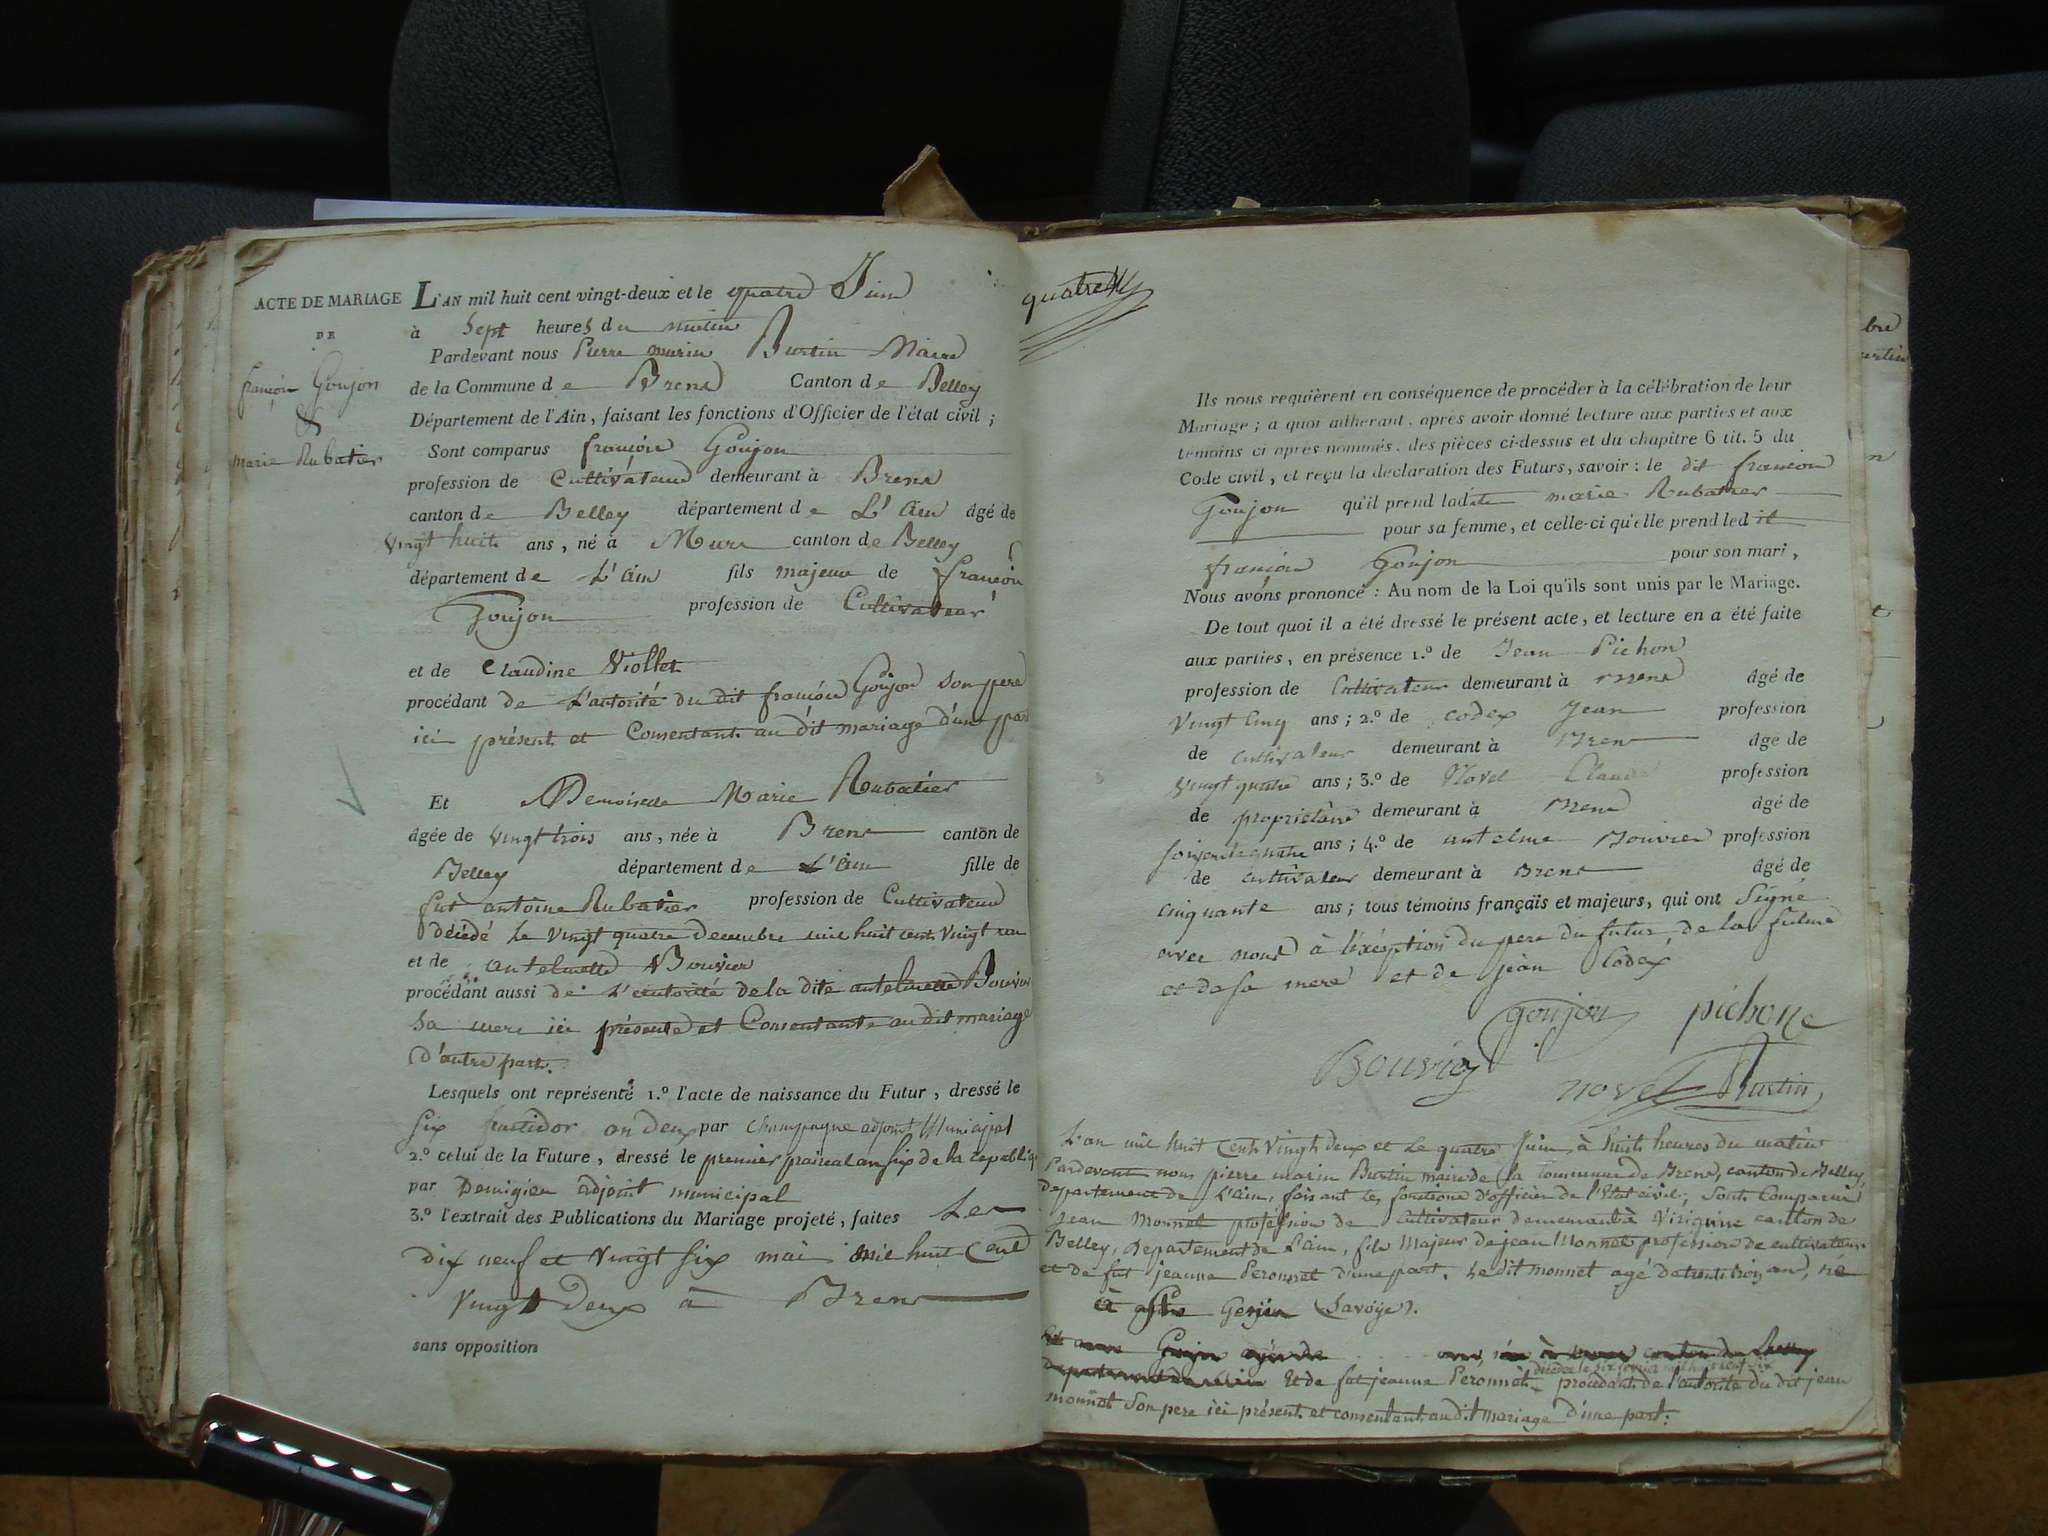 ACTE DE MARIAGE
DE
françois Goujon
&
marie Rubatier
L'AN mil huit cent vingt-deux et le quatre Juin
à Sept heures du matin
Pardevant nous Pierre marin Burtin Maire
de la Commune de Brens Canton de Belley
Département de l'Ain, faisant les fonctions d'Officier de l'état civil ;
Sont comparus françois Goujon
profession de Cultivateur demeurant à Brens
canton de Belley département de L'Ain âgé de
Vingt huit ans, né à Murs canton de Belley
département de L'Ain fils majeur de françois
Goujon profession de Cultivateur
et de Claudine Viollet
procédant de L'autorité du dit françois Goujon son pere
ici présent et Consentant au dit mariage d'une part
Et Demoiselle Marie Rubatier
âgée de vingt trois ans, née à Brens canton de
Belley département de L'Ain fille de
fut antoine Rubatier profession de Cultivateur
décédé le vingt quatre Decembre mil huit cent vingt un
et de antelmette Bouvier
procédant aussi de L'autorité de la dite antelmette Bouvier
Sa mere ici présente et Consentante au dit mariage
D'autre part.
Lesquels ont représenté 1.º l'acte de naissance du Futur, dressé le
Six fructidor an deux par Champagne adjoint Municipal
2.º celui de la Future, dressé le premier prairial an six de la republique
par Demigieu adjoint municipal
3.º l'extrait des Publications du Mariage projeté, faites Les
dix neuf et vingt six mai mil huit Cent
Vingt Deux à Brens
sans opposition
quatre
Ils nous requièrent en conséquence de procéder à la célébration de leur
Mariage ; a quoi adhérant, après avoir donné lecture aux parties et aux
témoins ci après nommés, des pièces ci-dessus et du chapitre 6 tit. 5 du
Code civil, et reçu la déclaration des Futurs, savoir : le dit françois
Goujon qu'il prend ladite marie Rubatier
pour sa femme, et celle-ci qu'elle prend ledit
françois Goujon pour son mari,
Nous avons prononcé : Au nom de la Loi qu'ils sont unis par le Mariage.
De tout quoi il a été dressé le présent acte, et lecture en a été faite
aux parties, en présence 1.º de Jean Pichon
profession de Cultivateur demeurant à Brens âgé de
Vingt Cinq ans ; 2.º de codex Jean profession
de cultivateur demeurant à Brens âgé de
Vingt quatre ans ; 3.º de Novel Claude profession
de propriétaire demeurant à Brens âgé de
soixante quatre ans ; 4.º de antelme Bouvier profession
de cultivateur demeurant à Brens âgé de
cinquante ans ; tous témoins français et majeurs, qui ont Signé
avec nous à l'exéption du pere du futur, de la future
et de sa mere et de jean Codex
goujon pichone
Bouvier
novel Burtin
L'an mil huit Cent Vingt deux et le quatre Juin à huit heures du matin
Pardevant nous pierre marin Burtin maire de la commune de Brens, canton de Belley,
departement de L'ain, faisant les fonctions d'officier de l'Etat civil, Sont Comparus
jean Monnet profession de Cultivateur demeurant à Virignin canton de
Belley, Departement de L'ain, fils Majeur de jean Monnet profession de cultivateur
et de fut jeanne Peronnet d'une part. Le dit monnet agé de trente trois ans, né
à (Savoye).
Et de fut jeanne Peronnet décédée le six procédant de l'autorité du dit jean
monnet Son pere ici présent et consentant au dit mariage d'une part.